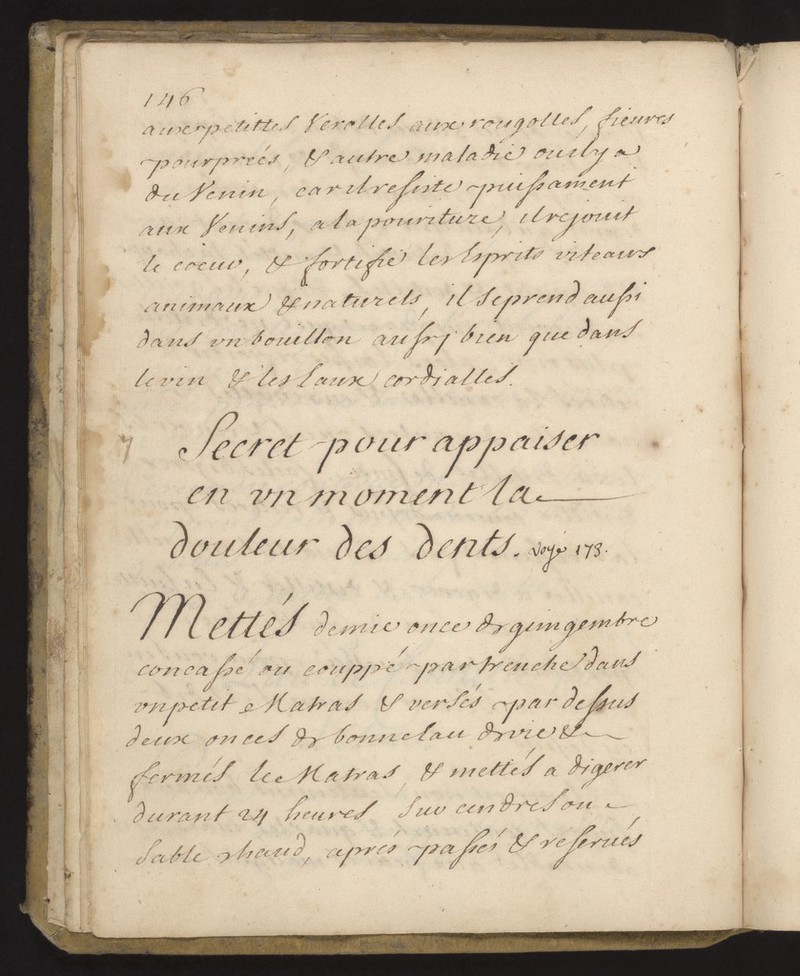 146
aux petittes Verolles aux rougolles, fieures
pourpreés, & autre maladie ou il y a
du Venin, car il resiste puissament
aux Venins, a la pouriture, il rejouit
le coeur, & fortifie les Esprits viteaux
animaux & naturels, il se prend aussi
dans vn bouillon aussy bien que dans
le vin & les Eaux cordialles.
Secret pour appaiser
en vn moment la
douleur des dents. voyé 173.
Mettés demie once de gimgembre
concassé ou couppé par trenche dans
vn petit Matras & versés par dessus
deux onces de bonne Eau de vie &
fermés le Matras, & mettés a digerer
durant 24 heures sur cendres ou
sable chaud, aprés passés & reserués